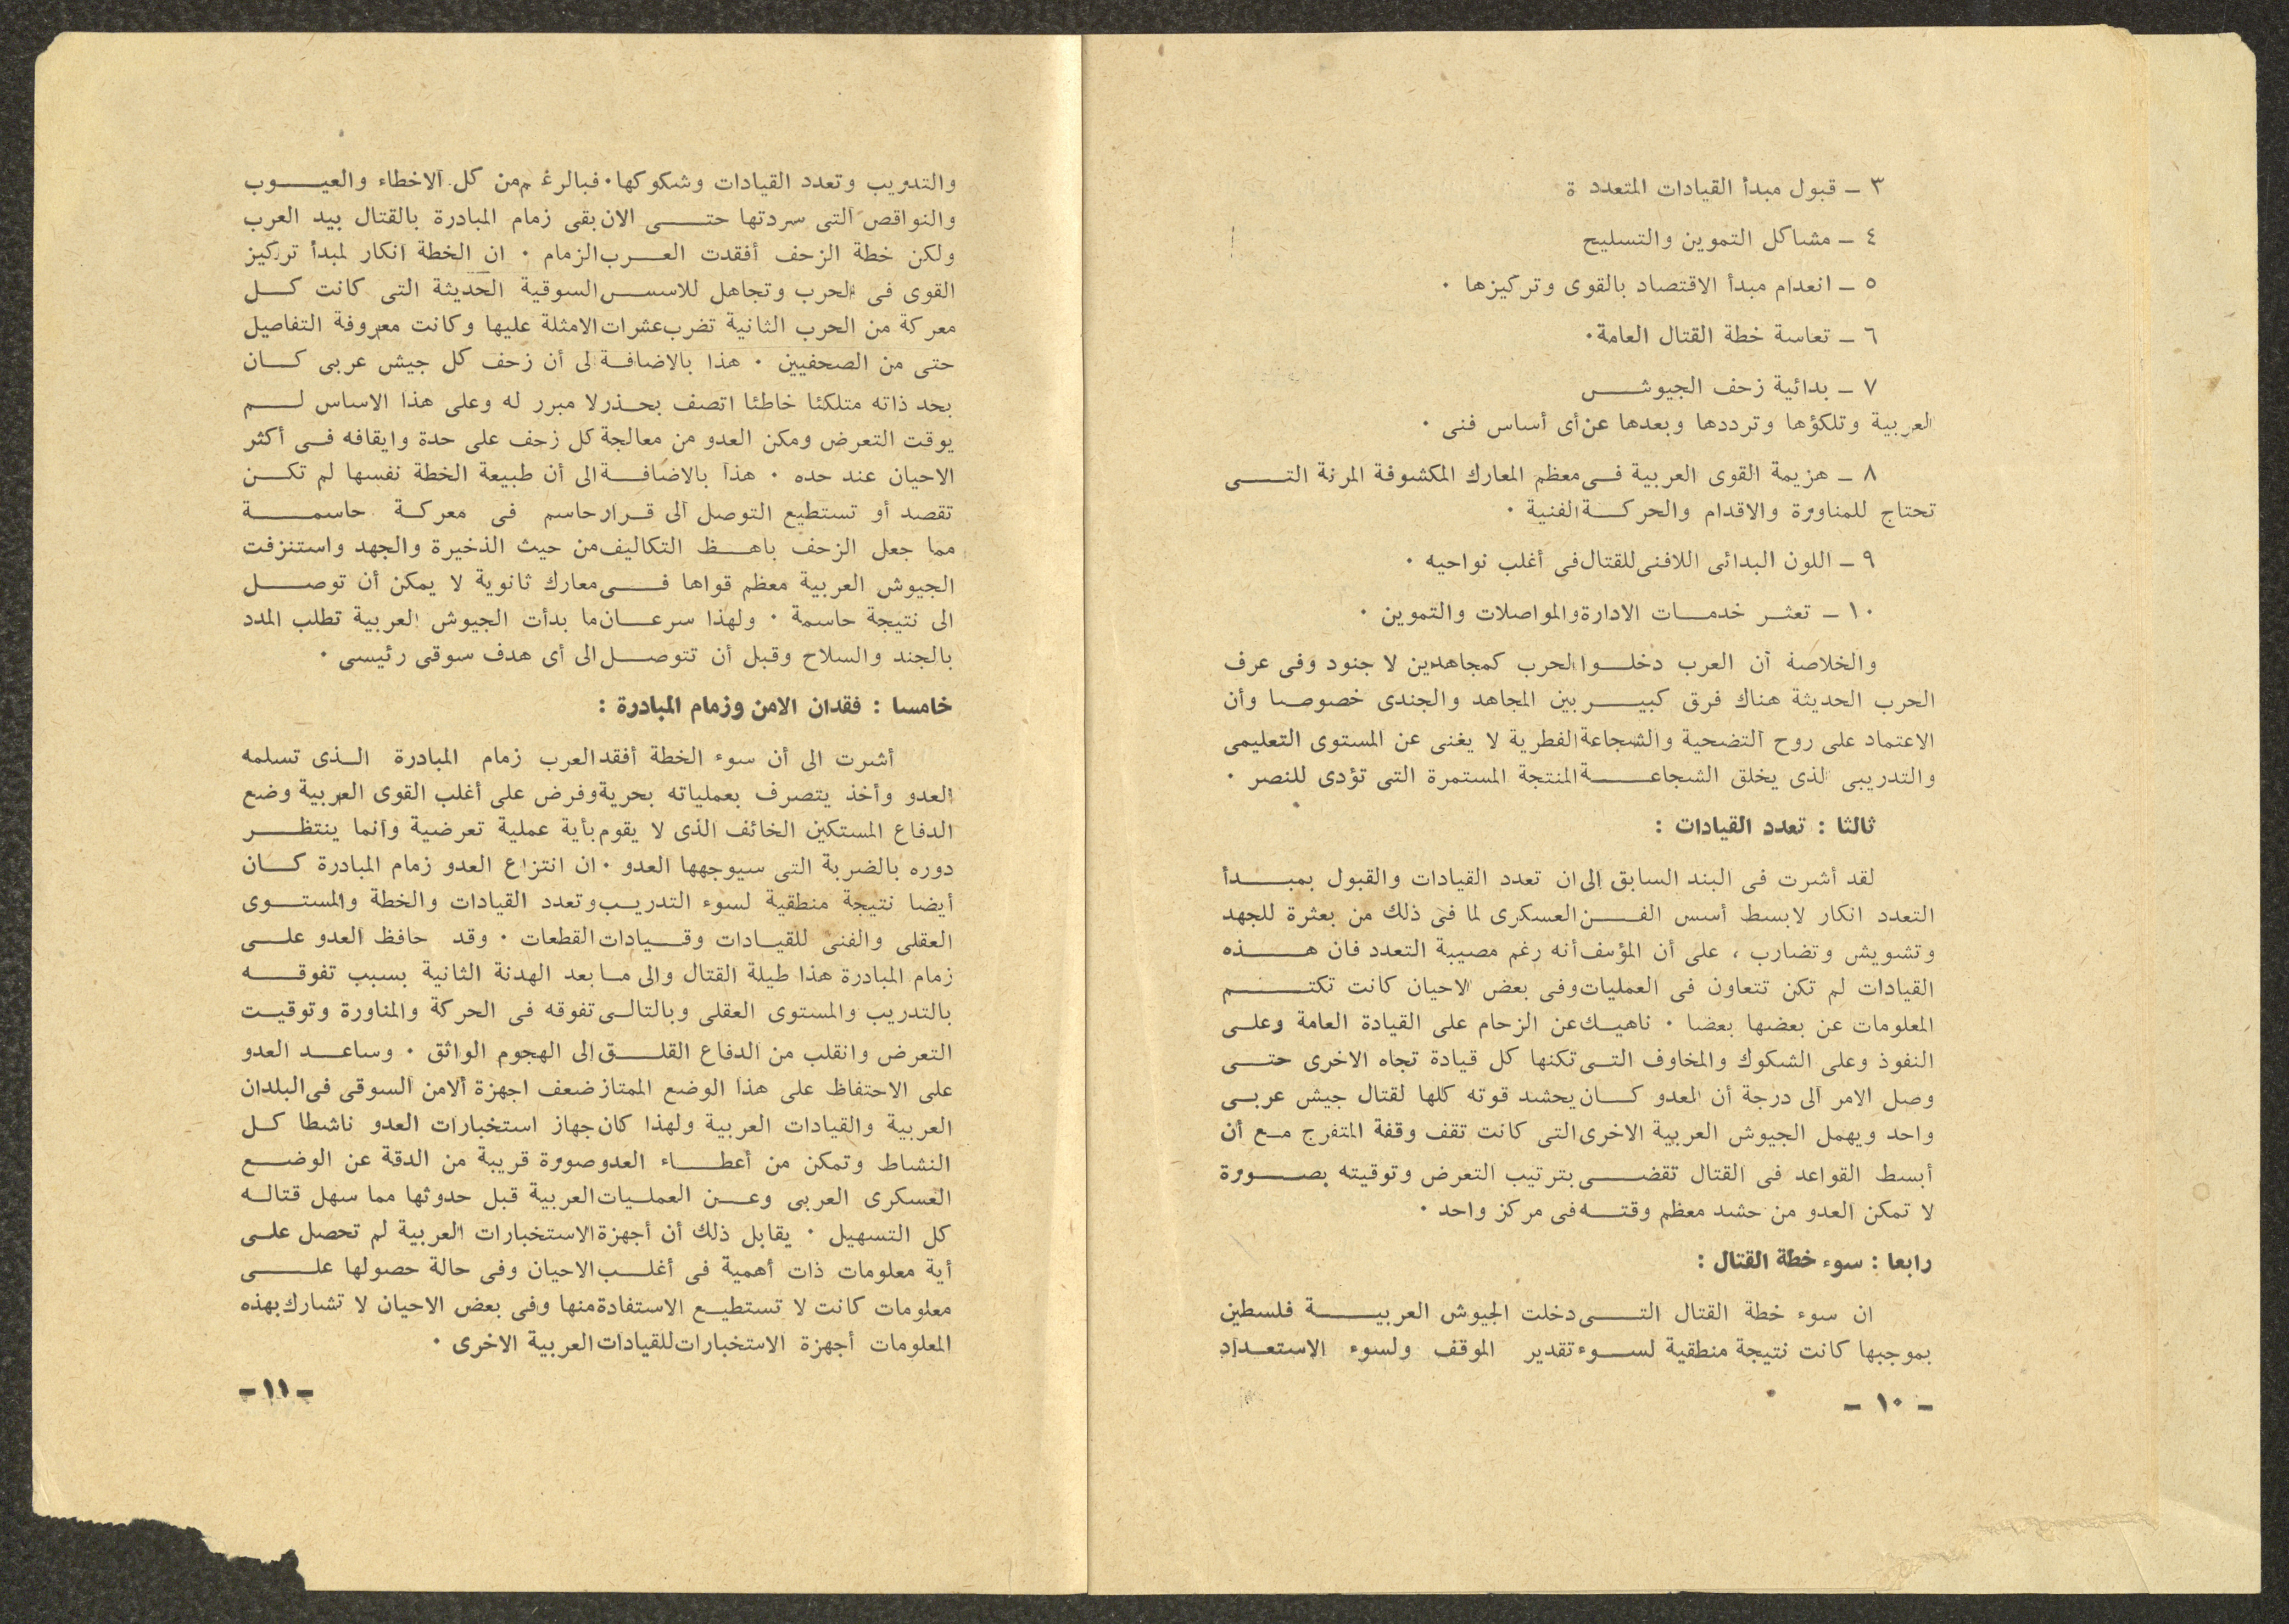 ٣ ـ قبول مبدأ القيادات المتعدد ة
٤ ـ مشاكل التموين والتسليح
٥ ـ انعدام مبدأ الاقتصاد بالقوى وتركيزها ٠
٦ ـ تعاسة خطة القتال العامة٠
٧ ـ بدائية زحف الجيوش
العربية وتلكؤها وترددها وبعدها عن أى أساس فنى ٠
٨ ـ هزيمة القوى العربية فى معظم المعارك المكشوفة المرنة التى
تحتاج للمناورة والاقدام والحركة الفنية ٠
٩ ـ اللون البدائى اللافنى للقتال فى أغلب نواحيه ٠
١٠ ـ تعثر خدمات الادارة والمواصلات والتموين ٠
والخلاصة أن العرب دخلوا الحرب كمجاهدين لا جنود وفى عرف
الحرب الحديثة هناك فرق كبير بين المجاهد والجندى خصوصا وأن
الاعتماد على روح التضحية والشجاعة الفطرية لا يغنى عن المستوى التعليمى
والتدريبى الذى يخلق الشجاعة المنتجة المستمرة التى تؤدى للنصر ٠
ثالثا : تعدد القيادات :
لقد أشرت فى البند السابق الى ان تعدد القيادات والقبول بمبدأ
التعدد انكار لابسط أسس الفن العسكرى لما فى ذلك من بعثرة للجهد
وتشويش وتضارب ، على أن المؤسف أنه رغم مصيبة التعدد فان هذه
القيادات لم تكن تتعاون فى العمليات وفى بعض الاحيان كانت تكتم
المعلومات عن بعضها بعضا ٠ ناهيك عن الزحام على القيادة العامة وعلى
النفوذ وعلى الشكوك والمخاوف التى تكنها كل قيادة تجاه الاخرى حتى
وصل الامر الى درجة أن العدو كان يحشد قوته كلها لقتال جيش عربى
واحد ويهمل الجيوش العربية الاخرى التى كانت تقف وقفة المتفرج مع أن
أبسط القواعد فى القتال تقضى بترتيب التعرض وتوقيته بصورة
لا تمكن العدو من حشد معظم وقته فى مركز واحد ٠
رابعا : سوء خطة القتال :
ان سوء خطة القتال التى دخلت الجيوش العربية فلسطين
بموجبها كانت نتيجة منطقية لسوء تقدير الموقف ولسوء الاستعداد
ـ ١٠ ـ
والتدريب وتعدد القيادات وشكوكها٠ فبالرغم من كل الاخطاء والعيوب
والنواقص التى سردتها حتى الان بقى زمام المبادرة بالقتال بيد العرب
ولكن خطة الزحف أفقدت العرب الزمام ٠ ان الخطة انكار لمبدأ تركيز
القوى فى الحرب وتجاهل للاسس السوقية الحديثة التى كانت كل
معركة من الحرب الثانية تضرب عشرات الامثلة عليها وكانت معروفة التفاصيل
حتى من الصحفيين ٠ هذا بالاضافة الى أن زحف كل جيش عربى كان
بحد ذاته متلكئا خاطئا اتصف بحذر لا مبرر له وعلى هذا الاساس لم
يوقت التعرض ومكن العدو من معالجة كل زحف على حدة وايقافه فى أكثر
الاحيان عند حده ٠ هذا بالاضافة الى أن طبيعة الخطة نفسها لم تكن
تقصد أو تستطيع التوصل الى قرار حاسم فى معركة حاسمة
مما جعل الزحف باهظ التكاليف من حيث الذخيرة والجهد واستنزفت
الجيوش العربية معظم قواها فى معارك ثانوية لا يمكن أن توصل
الى نتيجة حاسمة ٠ ولهذا سرعان ما بدأت الجيوش العربية تطلب المدد
بالجند والسلاح وقبل أن تتوصل الى أى هدف سوقى رئيسى ٠
خامسا : فقدان الامن وزمام المبادرة :
أشرت الى أن سوء الخطة أفقد العرب زمام المبادرة الذى تسلمه
العدو وأخذ يتصرف بعملياته بحرية وفرض على أغلب القوى العربية وضع
الدفاع المستكين الخائف الذى لا يقوم بأية عملية تعرضية وانما ينتظر
دوره بالضربة التى سيوجهها العدو ٠ ان انتزاع العدو زمام المبادرة كان
أيضا نتيجة منطقية لسوء التدريب وتعدد القيادات والخطة والمستوى
العقلى والفنى للقيادات وقيادات القطعات ٠ وقد حافظ العدو على
زمام المبادرة هذا طيلة القتال والى ما بعد الهدنة الثانية بسبب تفوقه
بالتدريب والمستوى العقلى وبالتالى تفوقه فى الحركة والمناورة وتوقيت
التعرض وانقلب من الدفاع القلق الى الهجوم الواثق ٠ وساعد العدو
على الاحتفاظ على هذا الوضع الممتاز ضعف اجهزة الامن السوقى فى البلدان
العربية والقيادات العربية ولهذا كان جهاز استخبارات العدو ناشطا كل
النشاط وتمكن من أعطاء العدو صورة قريبة من الدقة عن الوضع
العسكرى العربى وعن العمليات العربية قبل حدوثها مما سهل قتاله
كل التسهيل ٠ يقابل ذلك أن أجهزة الاستخبارات العربية لم تحصل على
أية معلومات ذات أهمية فى أغلب الاحيان وفى حالة حصولها على
معلومات كانت لا تستطيع الاستفادة منها وفى بعض الاحيان لا تشارك بهذه
المعلومات أجهزة الاستخبارات للقيادات العربية الاخرى ٠
ـ ١١ ـ